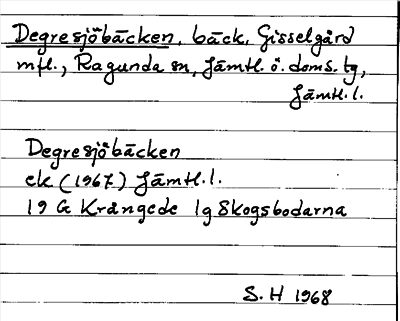 Degresjöbäcken, bäck, Gisselgård
mfl., Ragunda sn, Jämtl. ö. doms. tg,
Jämtl. l.
Degresjöbäcken
ek (1967) Jämtl. l.
19 G Krångede 1g Skogsbodarna
S. H 1968